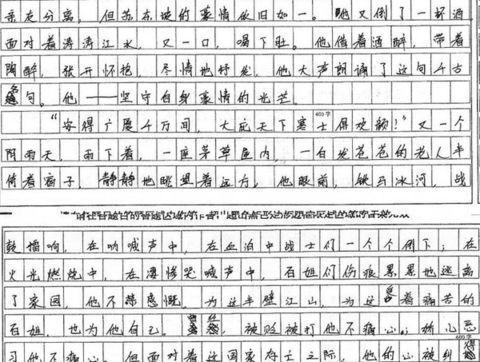 亲走分离，但苏东坡的豪情依旧如一。他又倒了一杯酒
面对着涛涛江水，又一口，喝下肚。他借着酒醉，带着
陶醉，张开怀抱，尽情地抒发，他大声朗诵了这句千古
名句。他——坚守自身豪情的光芒。
400字
“安得广厦千万间，大庇天下寒士俱欢颜！”又一个
阴雨天，雨下着，一座茅草屋内，一白发苍苍的老人半
倚着窗子，静静地眺望着远方，他眼前，铁马冰河，战
鼓擂响，在呐喊声中，在血泊中战士们一个个倒下；在
火光燃烧中，在凄惨哭喊声中，百姓们伤痕累累地逃离
了家园，他不禁感慨，为这半壁江山，为这着痛苦的
百姓，也为他自己。，被贬被打他不痛心；幼儿恶
习他不痛心。但面对着这国家存亡之际，他的心被纠